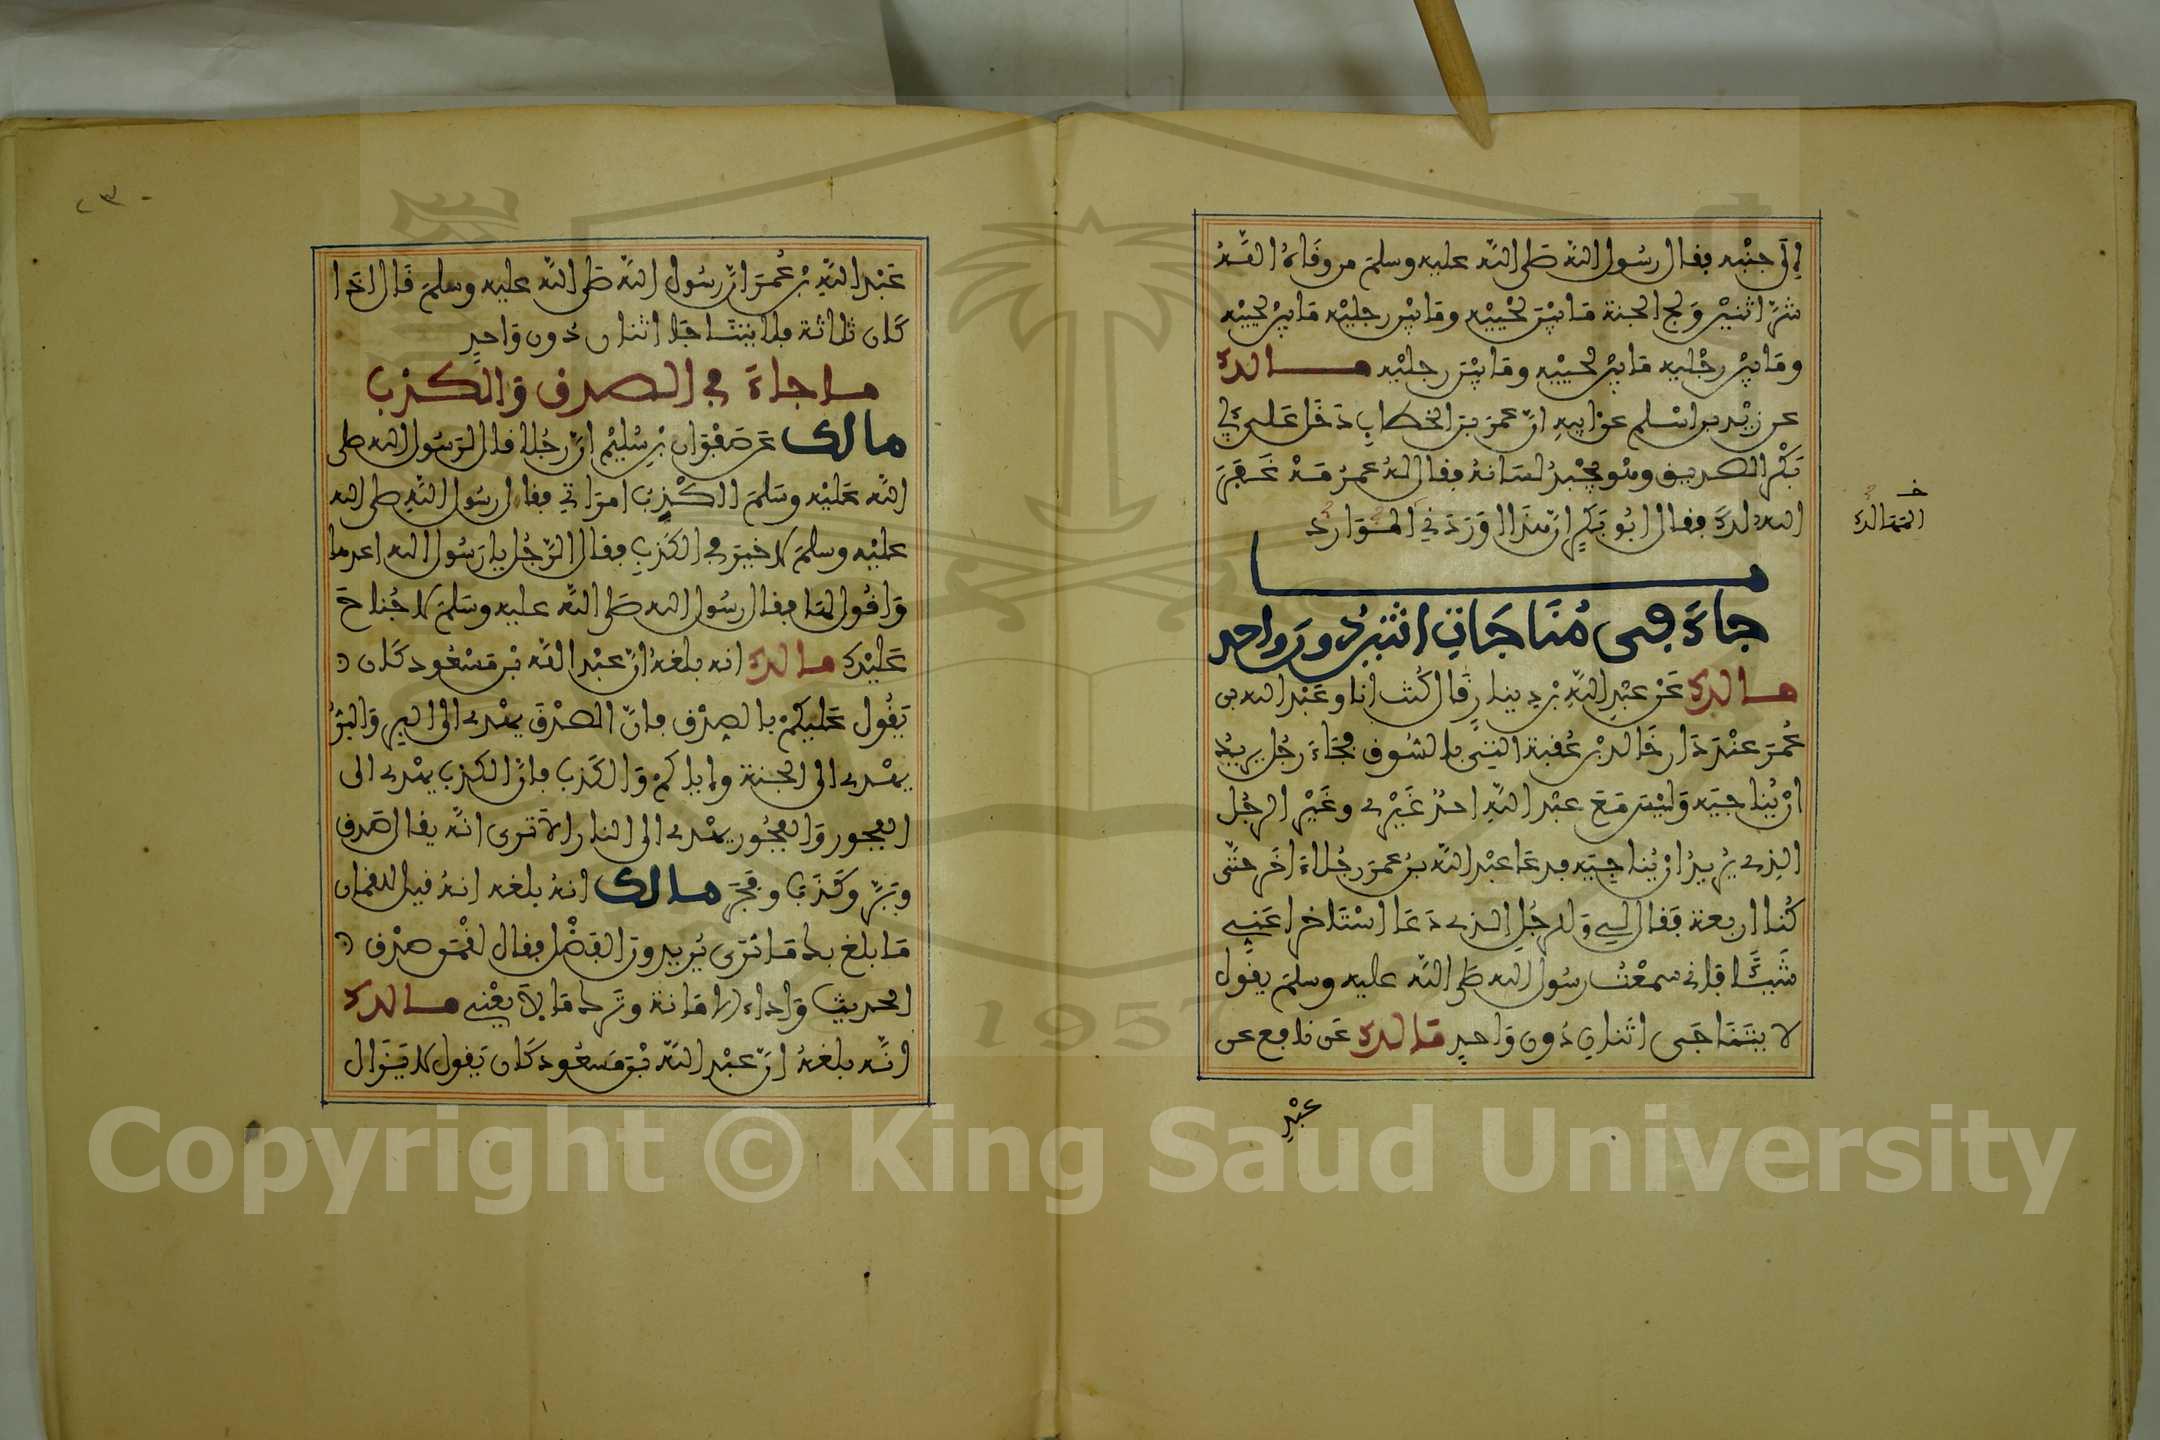 إلى جنبه فقال رسول الله صلى الله عليه وسلم من وقاه الله
شر اثنين ولج الجنة ما بين لحييه وما بين رجليه ما بين لحييه
وما بين رجليه ما بين لحييه وما بين رجليه مالك
عن زيد بن أسلم عن أبيه أن عمر بن الخطاب دخل على أبي
بكر الصديق وهو يجبذ لسانه فقال له عمر مه غفر
الله لك فقال أبو بكر إن هذا أوردني الموارد
المهالك
ما
جاء في مناجات اثنين دون واحد
مالك عن عبد الله بن دينار قال كنت أنا وعبد الله بن
عمر عند دار خالد بن عقبة التي بالسوق فجاء رجل يريد
أن يناجيه وليس مع عبد الله أحد غيري وغير الرجل
الذي يريد أن يناجيه فدعا عبد الله بن عمر رجلا آخر حتى
كنا أربعة فقال لي وللرجل الذي دعا استأخرا عني
شيئا فإني سمعت رسول الله صلى الله عليه وسلم يقول
لا يتناجى اثنان دون واحد مالك عن نافع عن
عبد
٢٣٠
عبد الله بن عمر أن رسول الله صلى الله عليه وسلم قال إذا
كان ثلاثة فلا يتناجا اثنان دون واحد
ما جاء في الصدق والكذب
مالك عن صفوان بن سليم أن رجلا قال لرسول الله صلى
الله عليه وسلم أأكذب امرأتي فقال رسول الله صلى الله
عليه وسلم لا خير في الكذب فقال الرجل يا رسول الله أعدها
وأقول لها فقال رسول الله صلى الله عليه وسلم لا جناح
عليك مالك أنه بلغه أن عبد الله بن مسعود كان
يقول عليكم بالصدق فإن الصدق يهدي إلى البر والبر
يهدي إلى الجنة وإياكم والكذب فإن الكذب يهدي إلى
الفجور والفجور يهدي إلى النار ألا ترى أنه يقال صدق
وبر وكذب وفجر مالك أنه بلغه أنه قيل للقمان
ما بلغ بك ما نرى يريدون الفضل فقال لقمن صدق
الحديث وأداء الأمانة وترك ما لا يعني مالك
أنه بلغه أن عبد الله بن مسعود كان يقول لا يزال
1957
Copyright © King Saud University